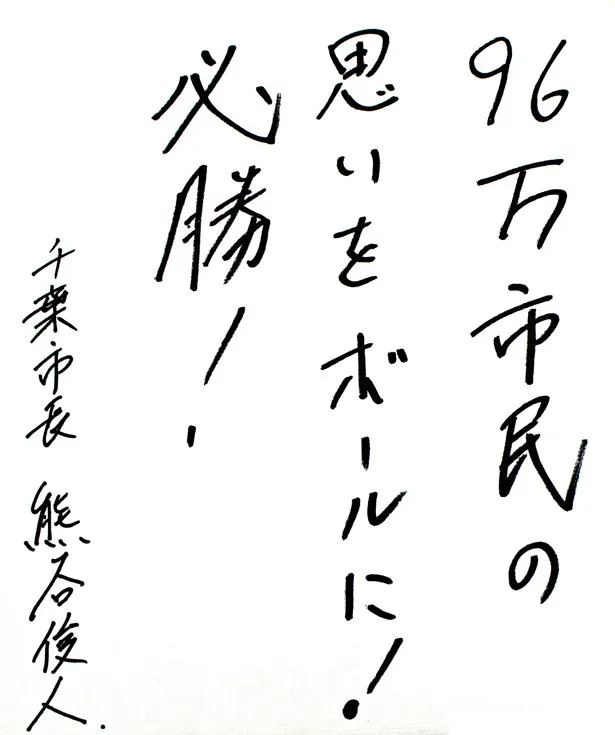 96万市民の
思いをボールに!
必勝!
千葉市長 熊谷俊人.